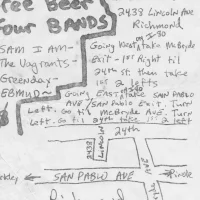 Free Beer
Four BANDS
2438 Lincoln Ave
Richmond
SAM I AM-
The Vagrants-
Greenday-
Going West, take McBryde
on I-80
exit - 1st Right til
24th st then take
1st 2 lefts
Going East, take SAN PABLO
AVE / SAN Pablo Exit. Turn
Left. Go til McBryde AVE. Turn
Left. Go til 24th take 1st 2 left
24th
2438
Lincoln
SAN PABLO AVE